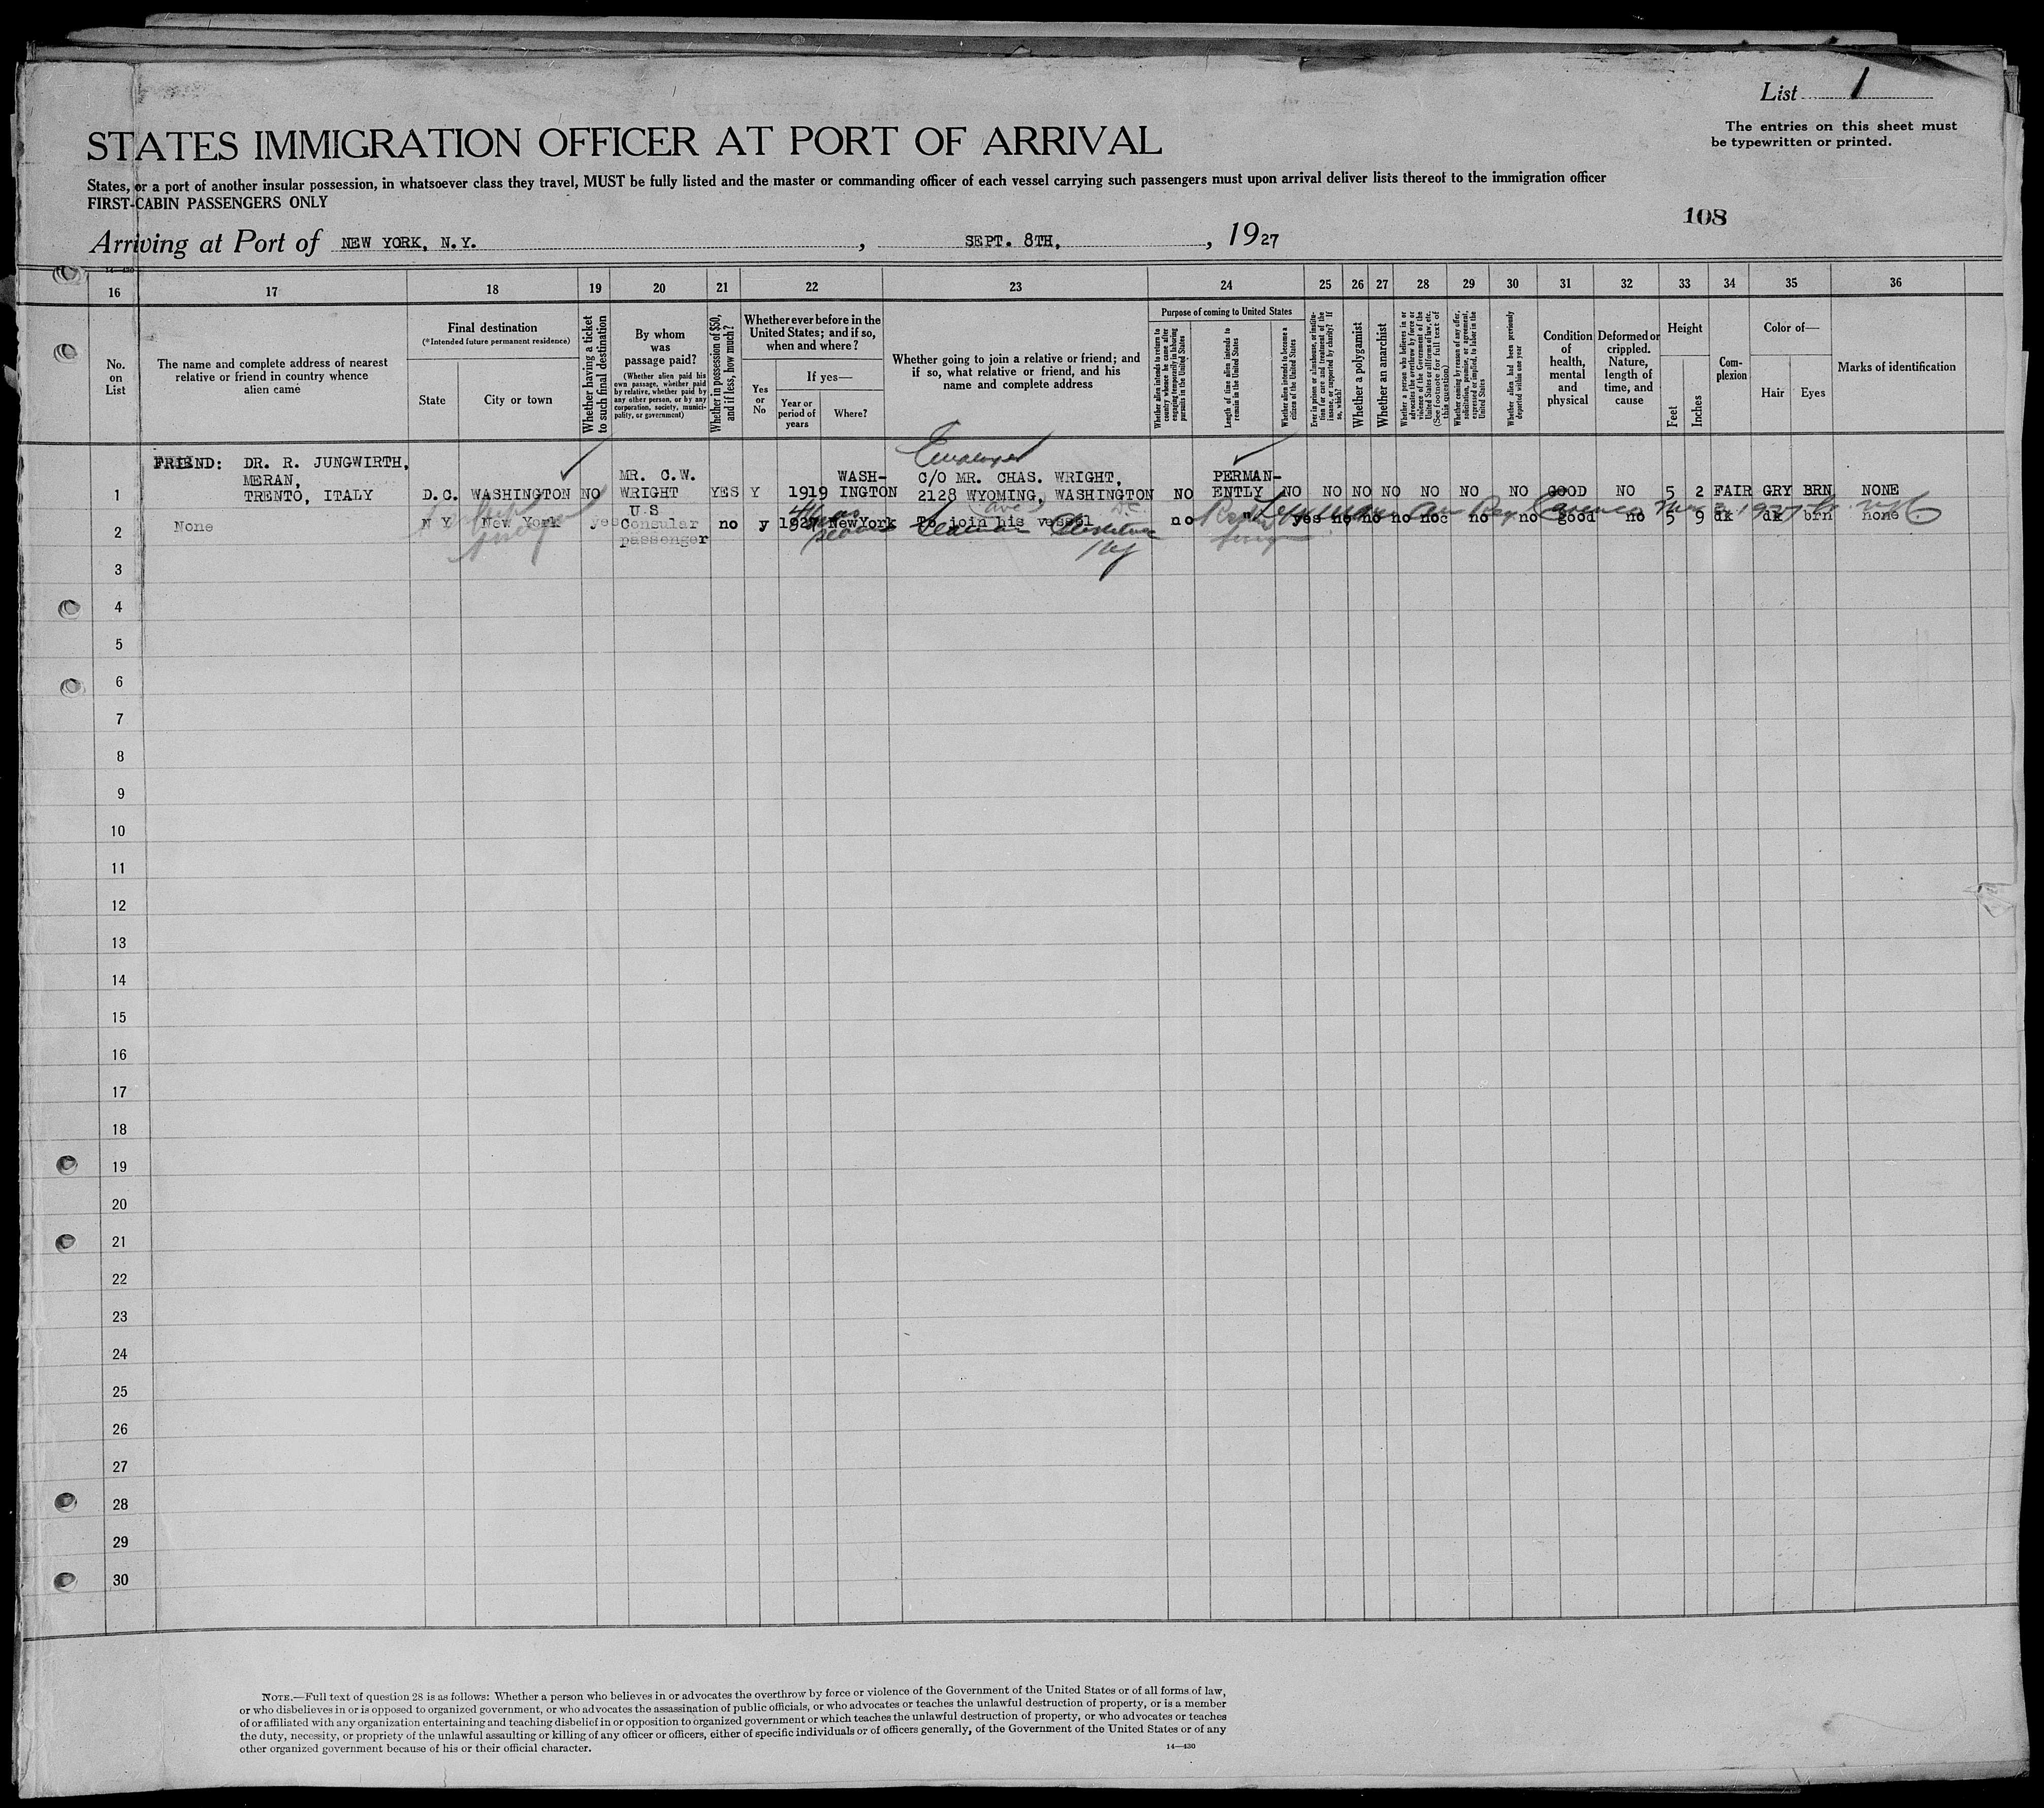 List 1
The entries on this sheet must
be typewritten or printed.
STATES IMMIGRATION OFFICER AT PORT OF ARRIVAL
States, or a port of another insular possession, in whatsoever class they travel, MUST be fully listed and the master or commanding officer of each vessel carrying such passengers must upon arrival deliver lists thereof to the immigration officer
FIRST-CABIN PASSENGERS ONLY
108
Arriving at Port of NEW YORK, N.Y. , SEPT. 8TH, , 1927
14—430
16 17 18 19 20 21 22 23 24 25 26 27 28 29 30 31 32 33 34 35 36
No.
on
List
The name and complete address of nearest
relative or friend in country whence
alien came
Final destination
(*Intended future permanent residence)
State
City or town
Whether having a ticket
to such final destination
By whom
was
passage paid?
(Whether alien paid his
own passage, whether paid
by relative, whether paid by
any other person, or by any
corporation, society, munici-
pality, or government)
Whether in possession of $50,
and if less, how much?
Whether ever before in the
United States; and if so,
when and where?
Yes
or
No
If yes—
Year or
period of
years
Where?
Whether going to join a relative or friend; and
if so, what relative or friend, and his
name and complete address
Purpose of coming to United States
Whether alien intends to return to
country whence he came after
engaging temporarily in laboring
pursuits in the United States
Length of time alien intends to
remain in the United States
Whether alien intends to become a
citizen of the United States
Ever in prison or almshouse, or institu-
tion for care and treatment of the
insane, or supported by charity? If
so, which?
Whether a polygamist
Whether an anarchist
Whether a person who believes in or
advocates the overthrow by force or
violence of the Government of the
United States or all forms of law, etc.
(See footnote for full text of
this question)
Whether coming by reason of any offer,
solicitation, promise, or agreement,
expressed or implied, to labor in the
United States
Whether alien had been previously
deported within one year
Condition
of
health,
mental
and
physical
Deformed or
crippled.
Nature,
length of
time, and
cause
Height
Feet
Inches
Com-
plexion
Color of—
Hair
Eyes
Marks of identification
Employer
FRIEND: DR. R. JUNGWIRTH,
MERAN,
TRENTO, ITALY
1 D.C. WASHINGTON NO
MR. C.W.
WRIGHT
YES Y 1919
WASH-
INGTON
C/O MR. CHAS. WRIGHT,
2128 WYOMING, WASHINGTON
Ave D.C.
NO
PERMAN-
ENTLY
NO NO NO NO NO NO NO GOOD NO 5 2 FAIR GRY BRN NONE
2 None N Y New York yes
U S
Consular
passenger
no y 1927 NewYork To join his vessel no yes no no no no no no good no 5 9 dk dk brn none
Seaman
3
4
5
6
7
8
9
10
11
12
13
14
15
16
17
18
19
20
21
22
23
24
25
26
27
28
29
30
NOTE.—Full text of question 28 is as follows: Whether a person who believes in or advocates the overthrow by force or violence of the Government of the United States or of all forms of law,
or who disbelieves in or is opposed to organized government, or who advocates the assassination of public officials, or who advocates or teaches the unlawful destruction of property, or is a member
of or affiliated with any organization entertaining and teaching disbelief in or opposition to organized government or which teaches the unlawful destruction of property, or who advocates or teaches
the duty, necessity, or propriety of the unlawful assaulting or killing of any officer or officers, either of specific individuals or of officers generally, of the Government of the United States or of any
other organized government because of his or their official character.
14—430